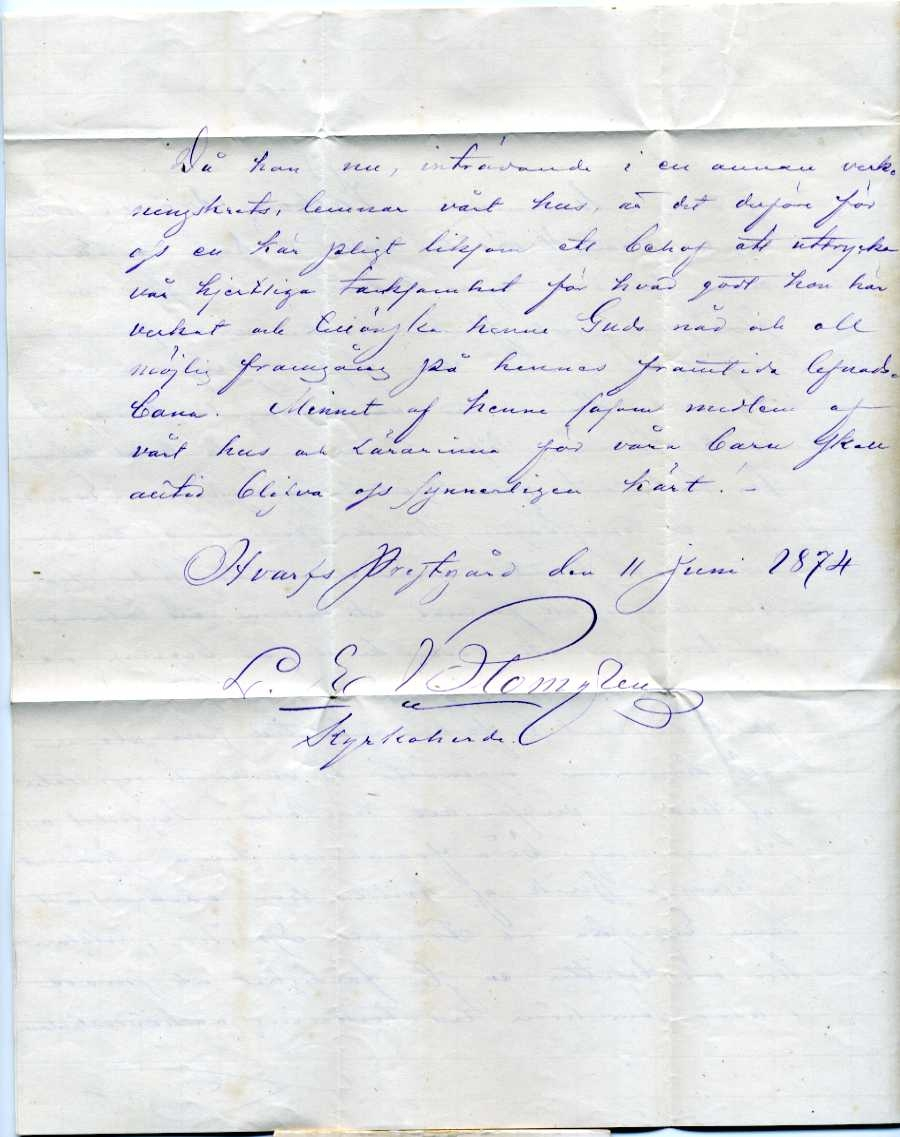 Då hon nu, inträdande i en annan verk-
ningskrets, lemnar vårt hus, är det derföre för
oss en kär pligt liksom ett behof att uttrycka
vår hjertliga tacksamhet för hvad godt hon här
verkat och tillönska henne Guds nåd och all
möjlig framgång på hennes framtida lefnads-
bana. Minnet af henne såsom medlem af
vårt hus och Lärarinna för våra barn skall
alltid blifva oss synnerligen kärt! –
Hvarfs Prestgård den 11 Juni 1874
L. E.
Kyrkoherde.